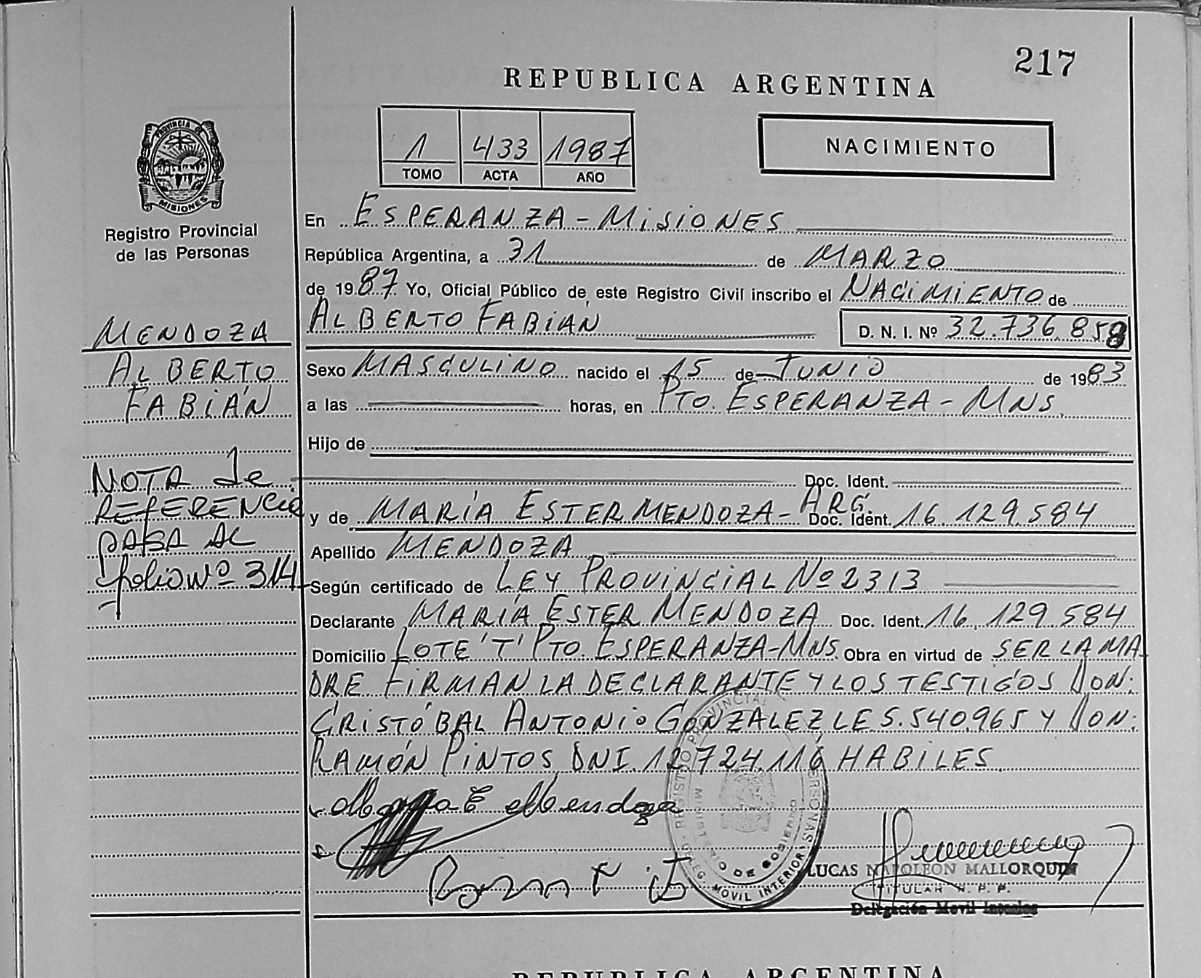 217
REPUBLICA ARGENTINA
1 433 1987
TOMO ACTA AÑO
NACIMIENTO
PROVINCIA DE MISIONES
Registro Provincial
de las Personas
MENDOZA
ALBERTO
FABIÁN
NOTA de
REFERENCIA
PASA AL
folio Nº 314
En ESPERANZA - MISIONES
República Argentina, a 31 de MARZO
de 1987 Yo, Oficial Público de este Registro Civil inscribo el NACIMIENTO de
ALBERTO FABIAN D. N. I. Nº 32.736.858
Sexo MASCULINO nacido el 15 de JUNIO de 1983
a las horas, en PTO. ESPERANZA - MNS.
Hijo de
Doc. Ident.
y de MARÍA ESTER MENDOZA - ARG. Doc. Ident. 16.129.584
Apellido MENDOZA
Según certificado de LEY PROVINCIAL Nº 2313
Declarante MARÍA ESTER MENDOZA Doc. Ident. 16.129.584
Domicilio LOTE 'T' PTO. ESPERANZA - MNS. Obra en virtud de SER LA MA
DRE. FIRMAN LA DECLARANTE Y LOS TESTIGOS DON:
CRISTÓBAL ANTONIO GONZALEZ LE 5.540.965 Y DON:
RAMÓN PINTOS DNI. 12.724.116 HABILES
Maria E Mendoza
REGISTRO PROVINCIAL PERSONAS
MINISTERIO DE GOBIERNO
DELEG. MOVIL INTERIOR
LUCAS NAPOLEON MALLORQUIN
TITULAR R. P. P.
Delegación Movil
REPUBLICA ARGENTINA